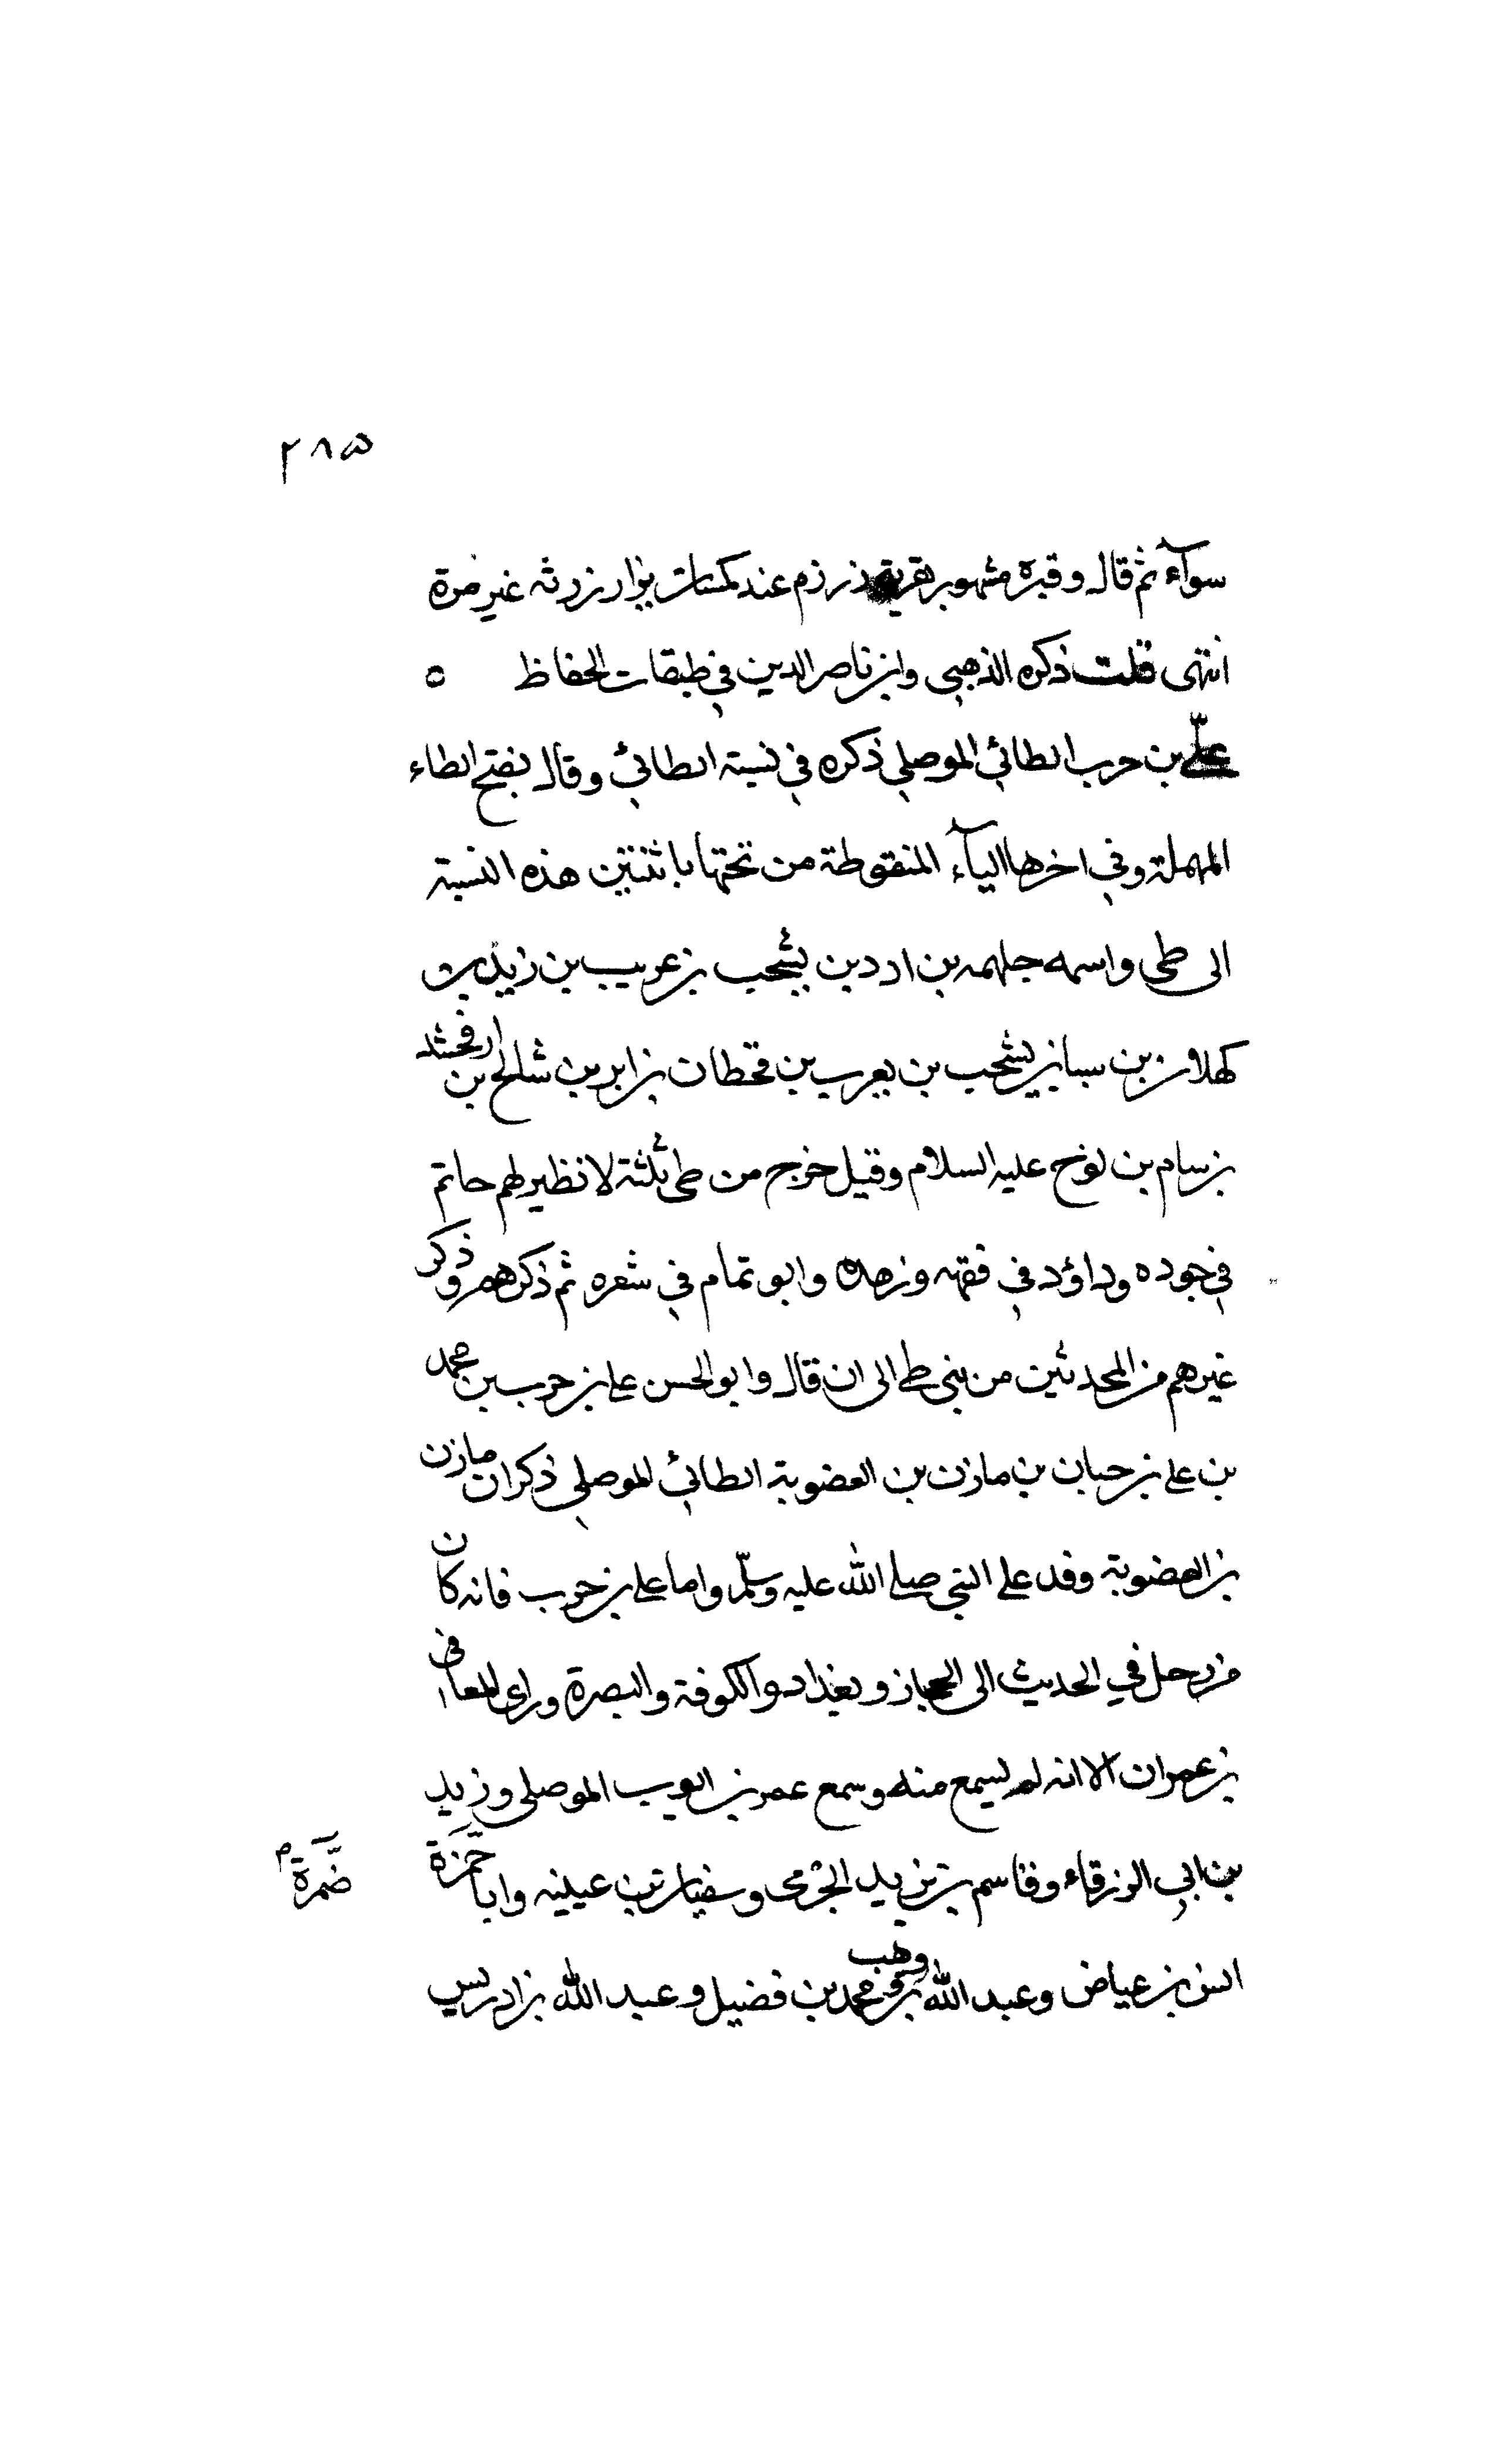 ٢٨٥
سوآء ثم قال وقبره مشهور بقرية زرزم عند غير مرة
انتهى قلت ذكره الذهبي وابن ناصر الدين في طبقات الحفاظ ه
علي بن حرب الطائي الموصلي ذكره في نسبة الطائي وقال بفتح الطاء
المهملة وفي اخرها اليآء المنقوطة من تحتها باثنتين هذه النسبة
الى طي واسمه جلهمه بن ادد بن يشجب بن عريب بن زيد بن
كهلان بن سبا بن يشجب بن يعرب بن قحطان بن ابر بن شالخ بن ارفخشد
بن سام بن نوح عليه السلام وقيل خرج من طي ثلثة لا نظير لهم حاتم
في جوده وداؤد في فقهه وزهده وابو تمام في شعره ثم ذكرهم وذكر
غيرهم من المحدثين من بني طي الى ان قال وابو الحسن علي بن حرب بن محمد
بن علي بن حبان بن مازن بن العضوبة الطائي الموصلي ذكر ان مازن
بن العضوبة وفد على النبي صلى الله عليه وسلم واما علي بن حرب فانه كان
من رحل في الحديث الى الحجاز وبغداد والكوفة والبصرة وراى المعافى
بن عمران الا انه لم يسمع منه وسمع عمر بن ايوب الموصلي وزيد
بن ابي الزرقاء وقاسم بن يزيد الجرمى وسفيان بن عيينه وابا حمزة
ضمرة م
انس بن عياض وعبد الله بن وهب ومحمد بن فضيل وعبد الله بن ادريس